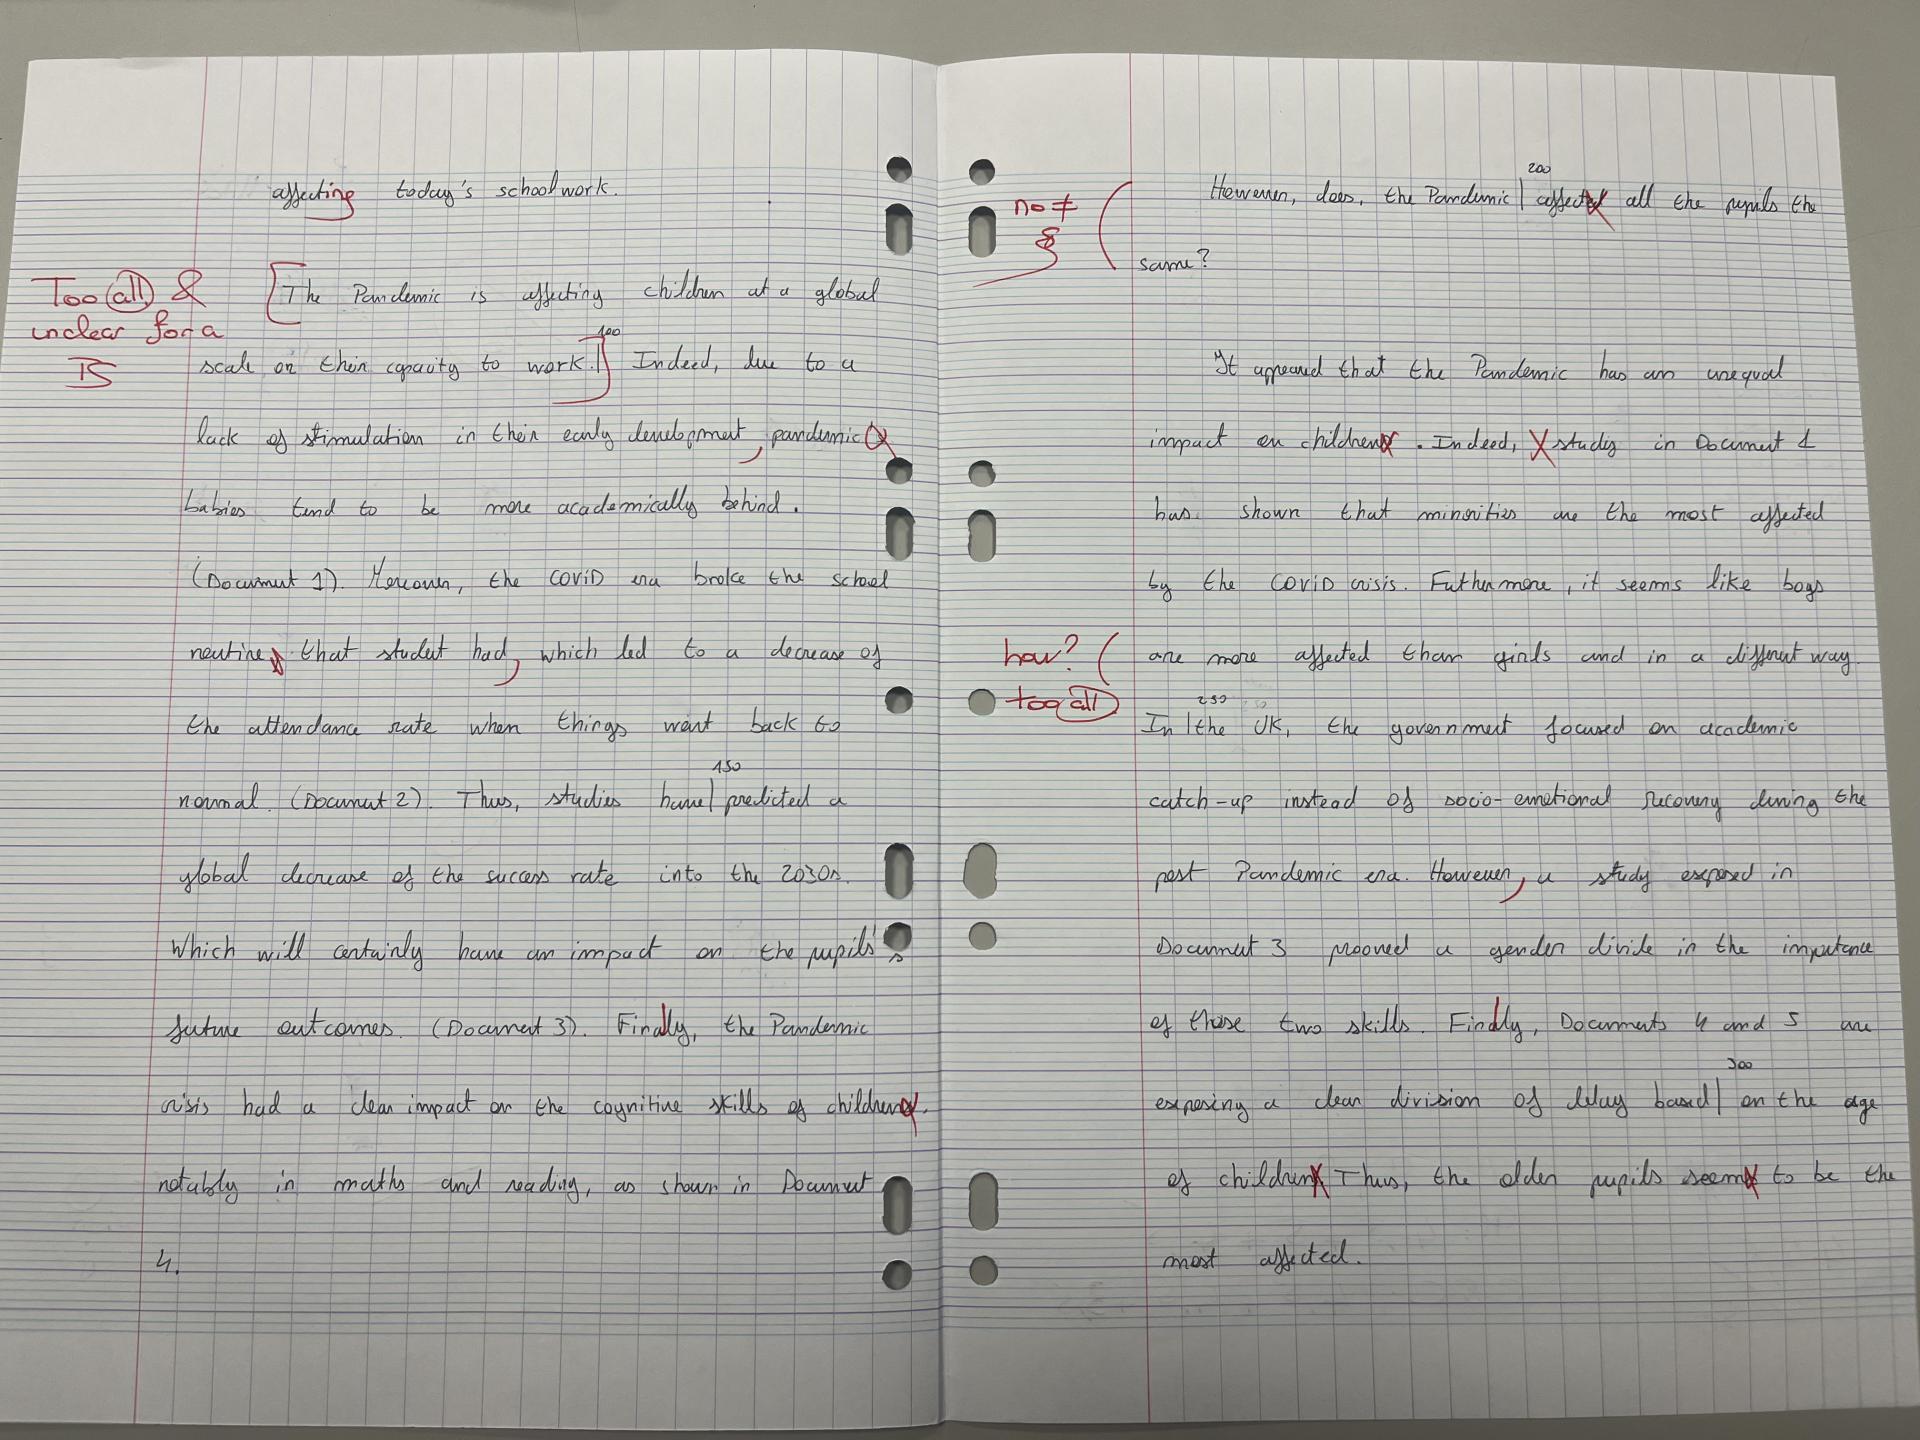 affecting today's schoolwork.
Too all &
unclear for a
IS
The Pandemic is affecting children at a global
100
scale on their capacity to work. Indeed, due to a
lack of stimulation in their early development, pandemic
babies tend to be more academically behind.
(Document 1). Moreover, the COVID era broke the school
routine that student had, which led to a decrease of
the attendance rate when things went back to
150
normal. (Document 2). Thus, studies have predicted a
global decrease of the success rate into the 2030s.
Which will certainly have an impact on the pupils's
future outcomes. (Document 3). Finally, the Pandemic
crisis had a clear impact on the cognitive skills of children
notably in maths and reading, as shown in Document
4.
200
no ≠
§
However, does, the Pandemic affect all the pupils the
same?
It appeared that the Pandemic has an unequal
impact on children. Indeed, study in Document 1
has shown that minorities are the most affected
by the COVID crisis. Futhermore, it seems like boys
how?
too all
are more affected than girls and in a different way.
250
In the UK, the government focused on academic
catch-up instead of socio-emotional recovery during the
post Pandemic era. However, a study exposed in
Document 3 prooved a gender divide in the importance
of those two skills. Finally, Documents 4 and 5 are
300
exposing a clear division of delay based on the age
of children Thus, the older pupils seem to be the
most affected.